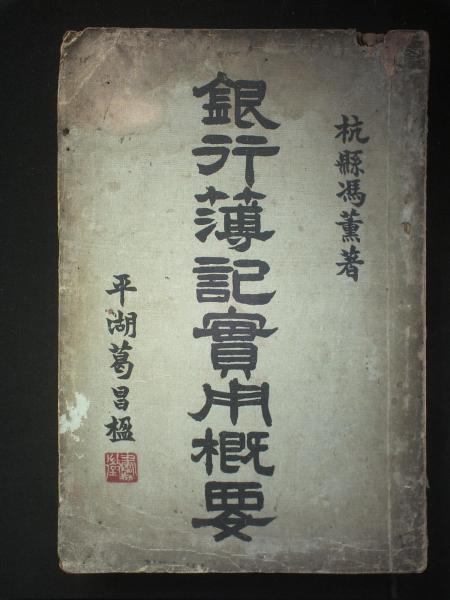 杭縣馮薰著
銀行薄記實用概要
平湖葛昌楹